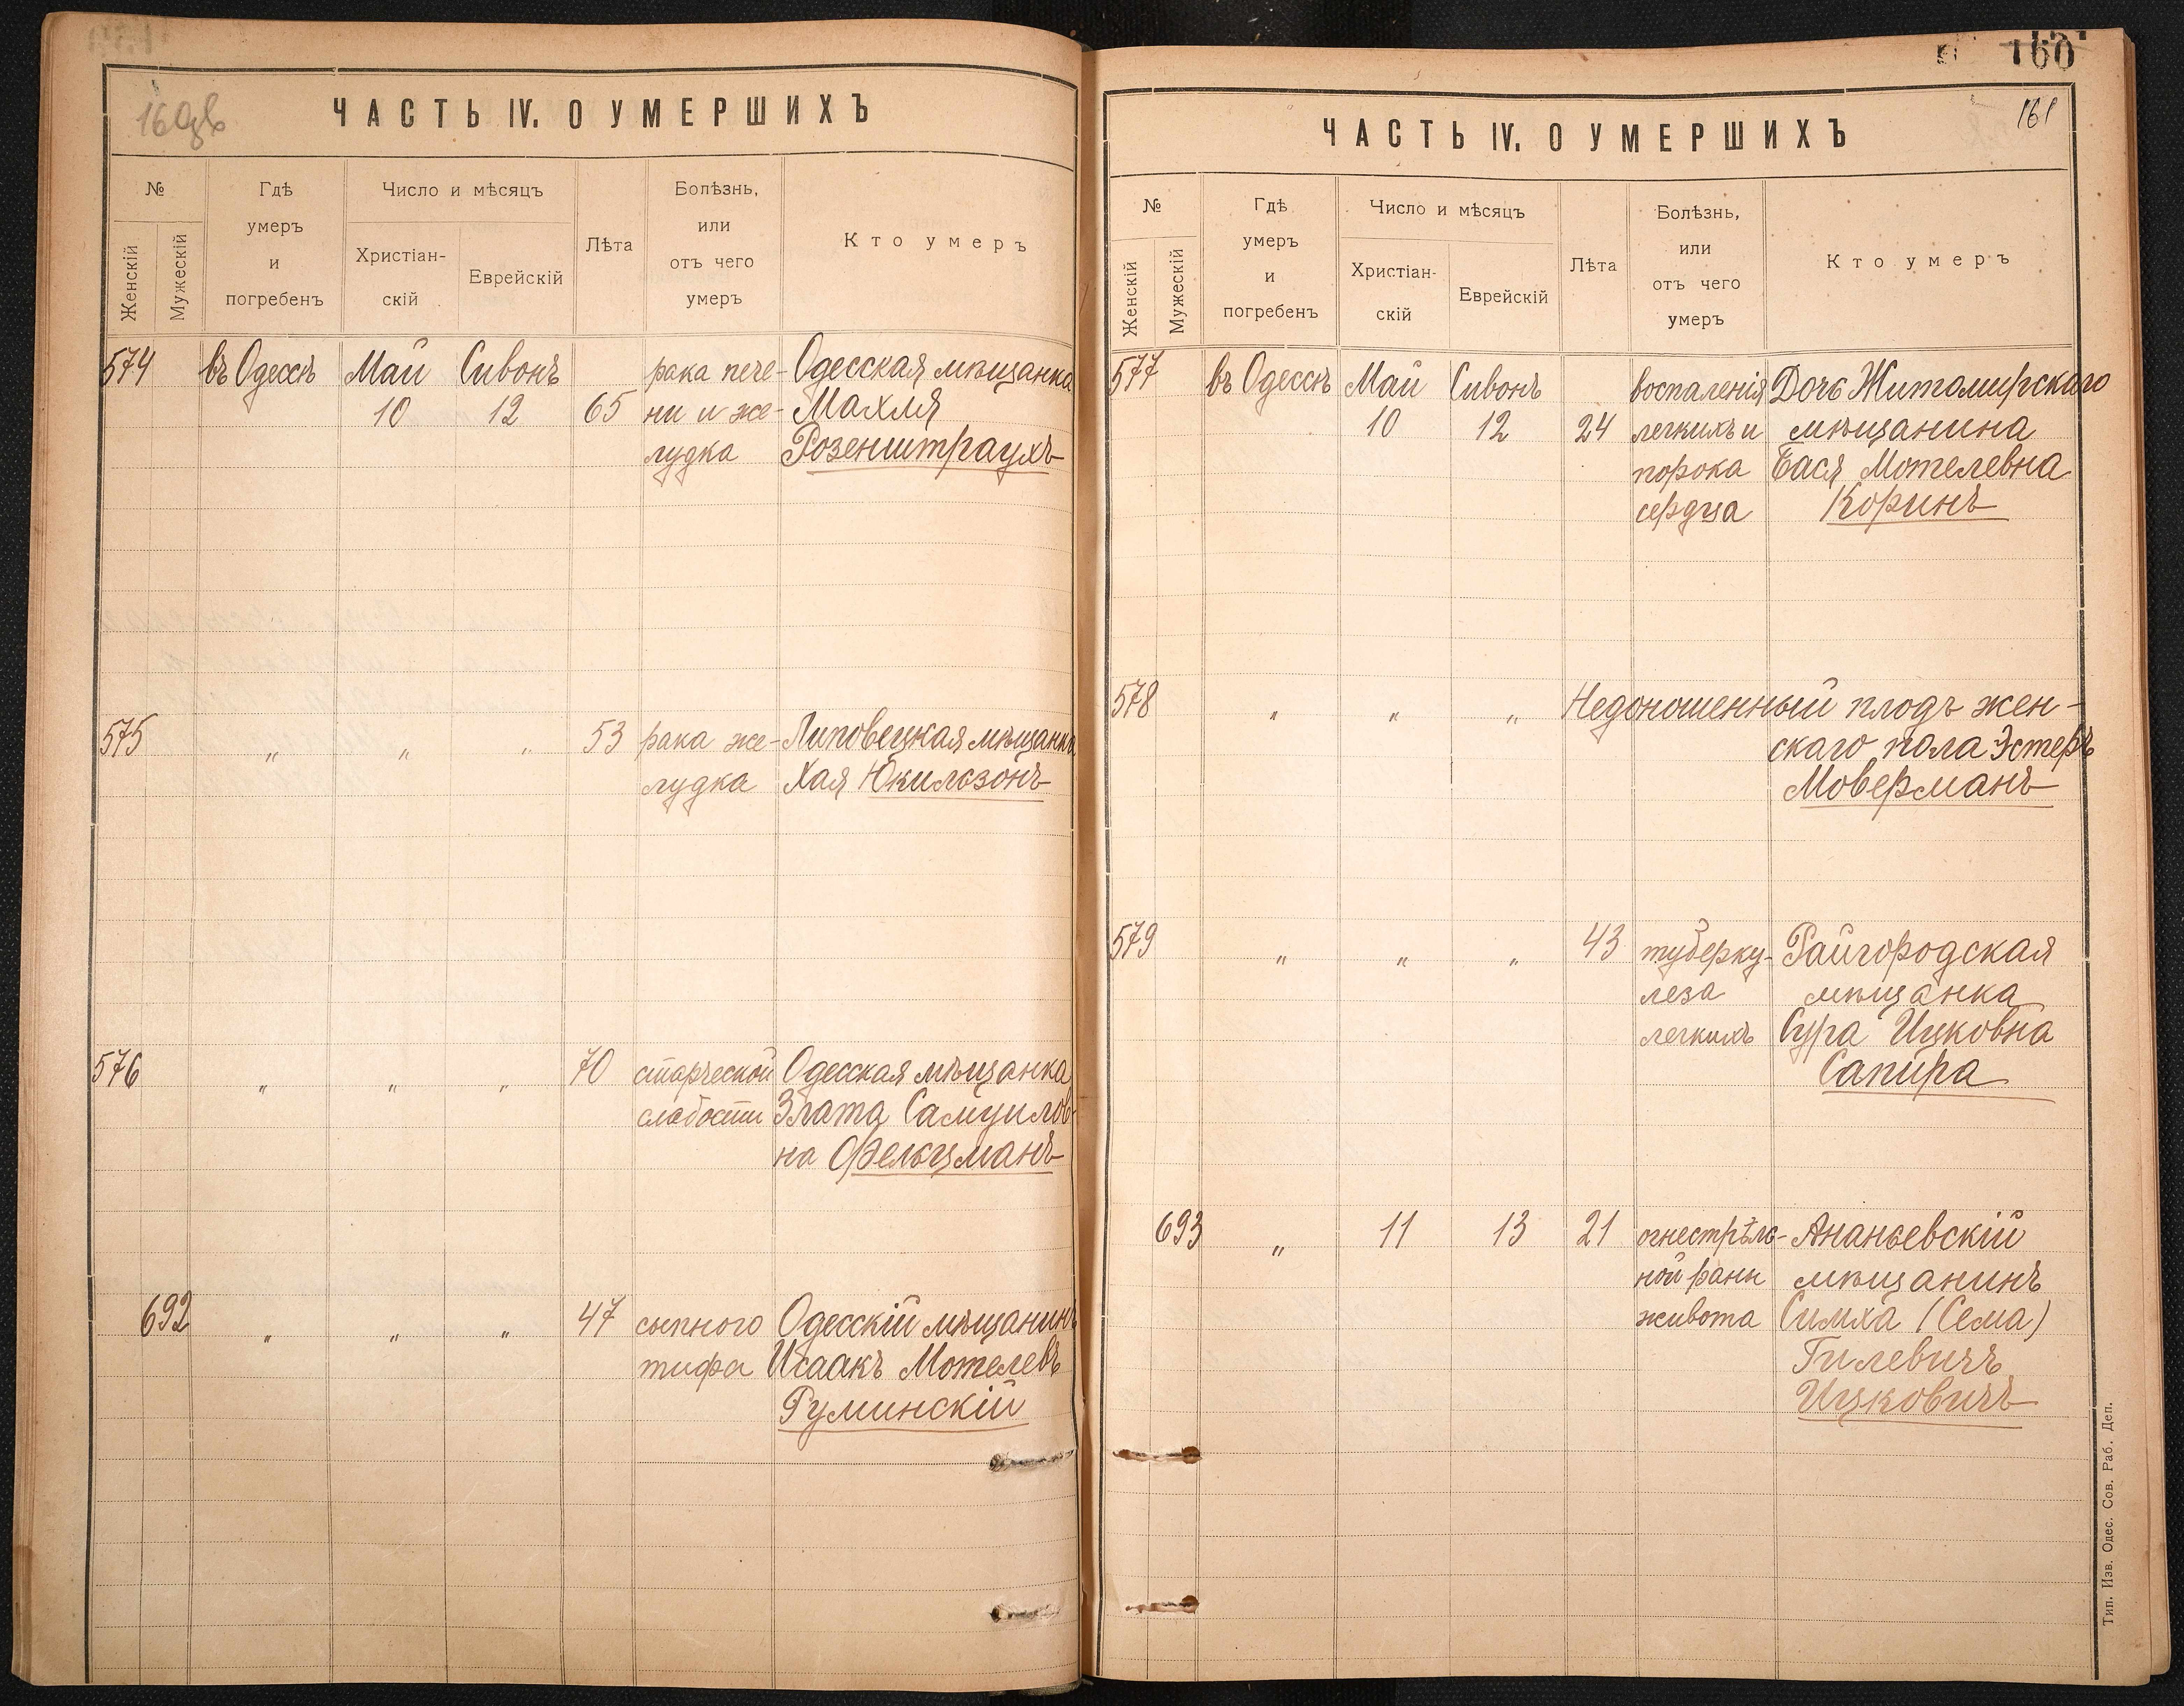 160зв
ЧАСТЬ IV. О УМЕРШИХЪ
№
Женскій
Мужескій
Гдѣ
умеръ
и
погребенъ
Число и мѣсяцъ
Христіан-
скій
Еврейскій
Лѣта
Болѣзнь,
или
отъ чего
умеръ
Кто умеръ
574 въ Одессѣ Май Сивонъ рака пече- Одесская мѣщанка
10 12 65 ни и же- Махля
лудка Розенштраухъ
575 „ „ „ 53 рака же- Липовецкая мѣщанка
лудка Хая Юкильзонъ
576 „ „ „ 70 старческой Одесская мѣщанка
слабости Злата Самуилов-
на Фельцманъ
692 „ „ „ 47 сыпного Одесскій мѣщанинъ
тифа Исаакъ Мотелевъ
Руминскій
160
161
ЧАСТЬ IV. О УМЕРШИХЪ
№
Женскій
Мужескій
Гдѣ
умеръ
и
погребенъ
Число и мѣсяцъ
Христіан-
скій
Еврейскій
Лѣта
Болѣзнь,
или
отъ чего
умеръ
Кто умеръ
577 въ Одессѣ Май Сивонъ воспаленія Дочь Житомирскаго
10 12 24 легкихъ и мѣщанина
порока Бася Мотелевна
сердца Коринъ
578 „ „ „ Недоношенный плодъ жен-
скаго пола Эстеръ
Моверманъ
579 „ „ „ 43 туберку- Райгородская
леза мѣщанка
легкихъ Сура Ицковна
Сапира
693 „ 11 13 21 огнестрѣль- Ананьевскій
ной раны мѣщанинъ
живота Симха (Сема)
Гилевичъ
Ицковичъ
Тип. Изв. Одес. Сов. Раб. Деп.